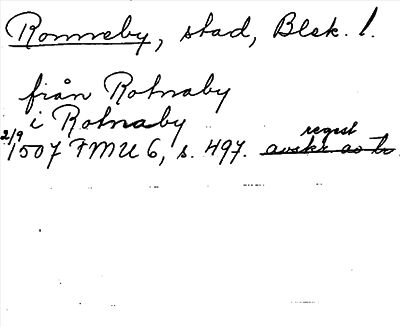 Ronneby, stad, Blek. l.
från Rotnaby
i Rotnaby
regest
2/9 1507 FMU 6, s. 497. avskr. av tr.